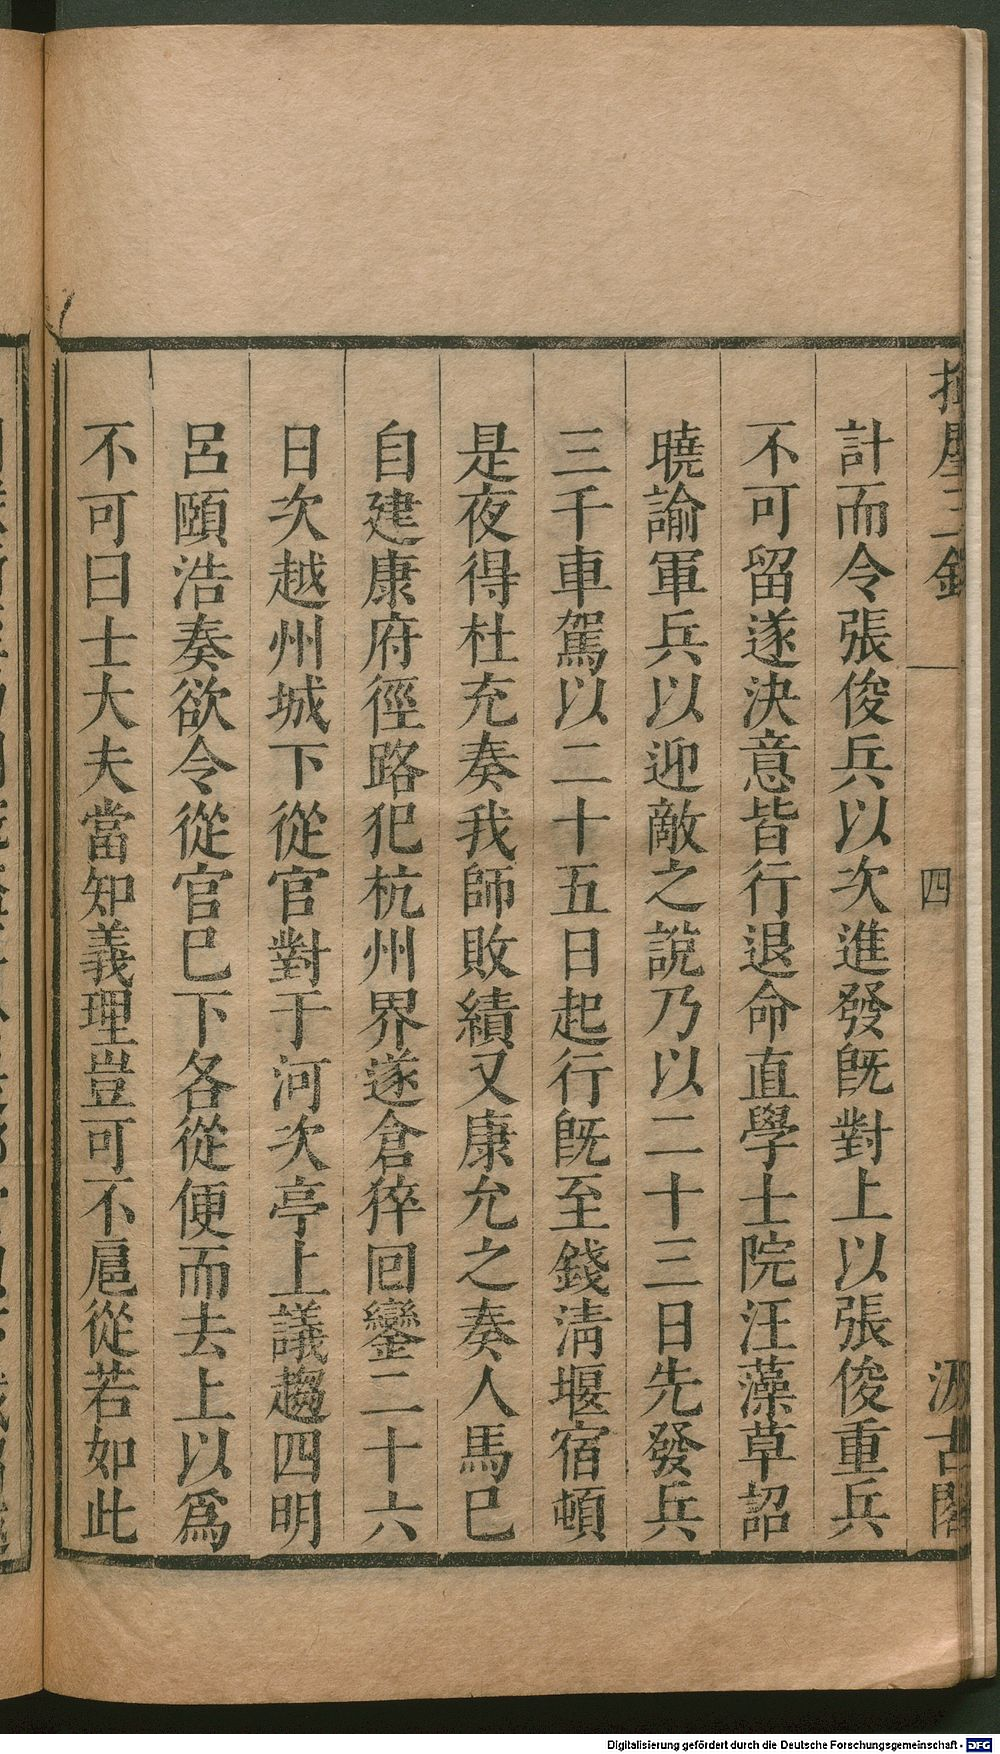 揮麈三錄
四
汲古閣
計而令張俊兵以次進發旣對上以張俊重兵
不可留遂決意皆行退命直學士院汪藻草詔
曉諭軍兵以迎敵之說乃以二十三日先發兵
三千車駕以二十五日起行旣至錢淸堰宿頓
是夜得杜充奏我師敗績又康允之奏人馬巳
自建康府徑路犯杭州界遂倉猝回鑾二十六
日次越州城下從官對于河次亭上議趨四明
呂頤浩奏欲令從官巳下各從便而去上以爲
不可曰士大夫當知義理豈可不扈從若如此
Digitalisierung gefördert durch die Deutsche Forschungsgemeinschaft - DFG